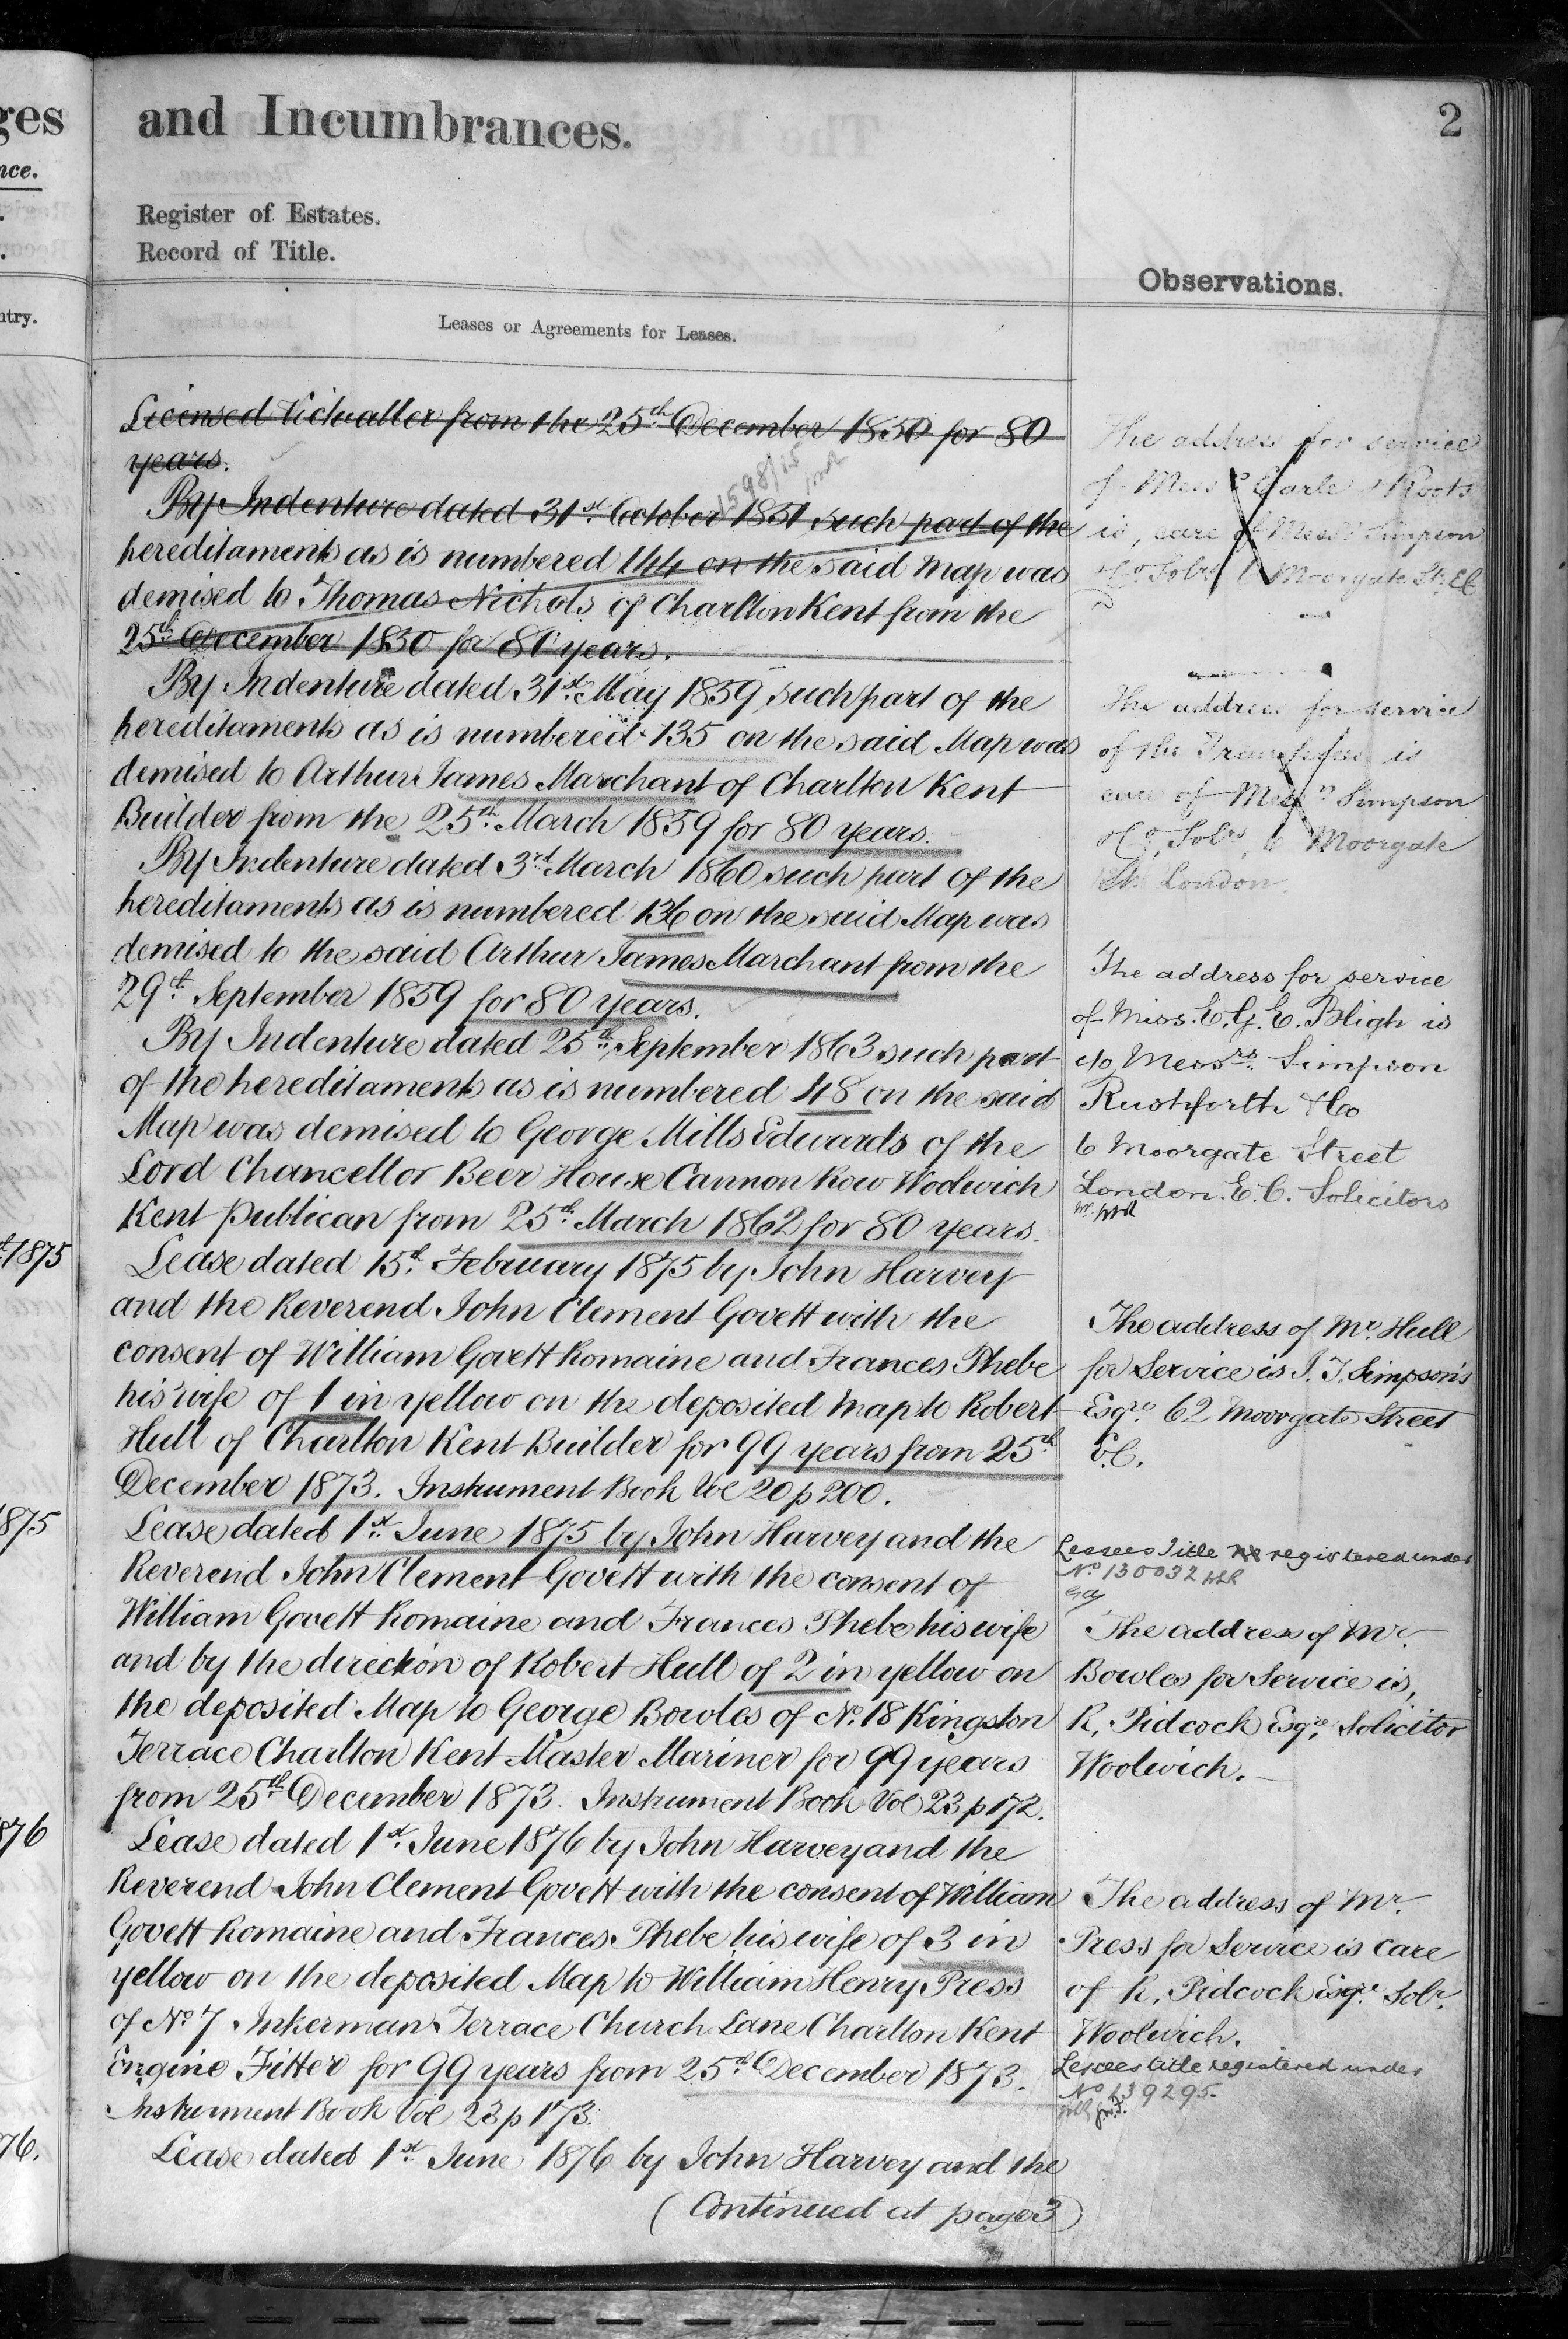 ges
nce.
ntry.
1875
1875
876
76.
and Incumbrances.
2
Register of Estates.
Record of Title.
Observations.
Leases or Agreements for Leases.
Licensed Victualler from the 25th December 1850 for 80
years.
1598/15
By Indenture dated 31st October 1851 such part of the
hereditaments as is numbered 144 on the said Map was
demised to Thomas Nichols of Charlton Kent from the
25th December 1850 for 80 years.
By Indenture dated 31st May 1859 such part of the
hereditaments as is numbered 135 on the said Map was
demised to Arthur James Marchant of Charlton Kent
Builder from the 25th March 1859 for 80 years.
By Indenture dated 3rd March 1860 such part of the
hereditaments as is numbered 136 on the said Map was
demised to the said Arthur James Marchant from the
29th September 1859 for 80 years.
By Indenture dated 25th September 1863 such part
of the hereditaments as is numbered 48 on the said
Map was demised to George Mills Edwards of the
Lord Chancellor Beer House Cannon Row Woolwich
Kent Publican from 25th March 1862 for 80 years.
Lease dated 15th February 1875 by John Harvey
and the Reverend John Clement Govett with the
consent of William Govett Romaine and Frances Phebe
his wife of 1 in yellow on the deposited Map to Robert
Hull of Charlton Kent Builder for 99 years from 25th
December 1873. Instrument Book Vol 20 p 200.
Lease dated 1st June 1875 by John Harvey and the
Reverend John Clement Govett with the consent of
William Govett Romaine and Frances Phebe his wife
and by the direction of Robert Hull of 2 in yellow on
the deposited Map to George Bowles of No. 18 Kingston
Terrace Charlton Kent Master Mariner for 99 years
from 25th December 1873. Instrument Book Vol 23 p 172.
Lease dated 1st June 1876 by John Harvey and the
Reverend John Clement Govett with the consent of William
Govett Romaine and Frances Phebe his wife of 3 in
yellow on the deposited Map to William Henry Press
of No 7 Inkerman Terrace Church Lane Charlton Kent
Engine Fitter for 99 years from 25th December 1873.
Instrument Book Vol 23 p 173.
Lease dated 1st June 1876 by John Harvey and the
(Continued at page 3)
The address for service
of Messrs Earle & Roots
is, care of Messrs Simpson
& Co Solrs 62 Moorgate St. EC
The address for service
of the Transferees is
care of Messrs Simpson
& Co, Solrs, 62 Moorgate
St. London.
The address for service
of Miss. E. G. E. Bligh is
c/o Messrs. Simpson
Rushforth & Co
6 Moorgate Street
London. E. C. Solicitors
The address of Mr. Hull
for Service is J. T. Simpson's
Esqre. 62 Moorgate Street
E.C.
Lessees Title registered under
No. 130032
The address of Mr.
Bowles for Service is,
R. Pidcock Esqre, Solicitor
Woolwich.
The address of Mr.
Press for Service is care
of R. Pidcock Esqr. Solr.
Woolwich.
Lessees title registered under
No. 139295.